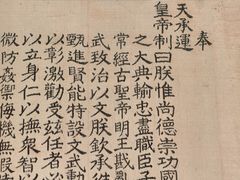 奉
天承運
皇帝制曰朕惟尚德崇功國
之大典輸忠盡職臣子
常經古聖帝明王戡亂
武致治以文朕欽承
甄進賢能特設文武勳
以彰激勸受茲任者
以立身仁以撫眾智以
微防姦禦侮機無